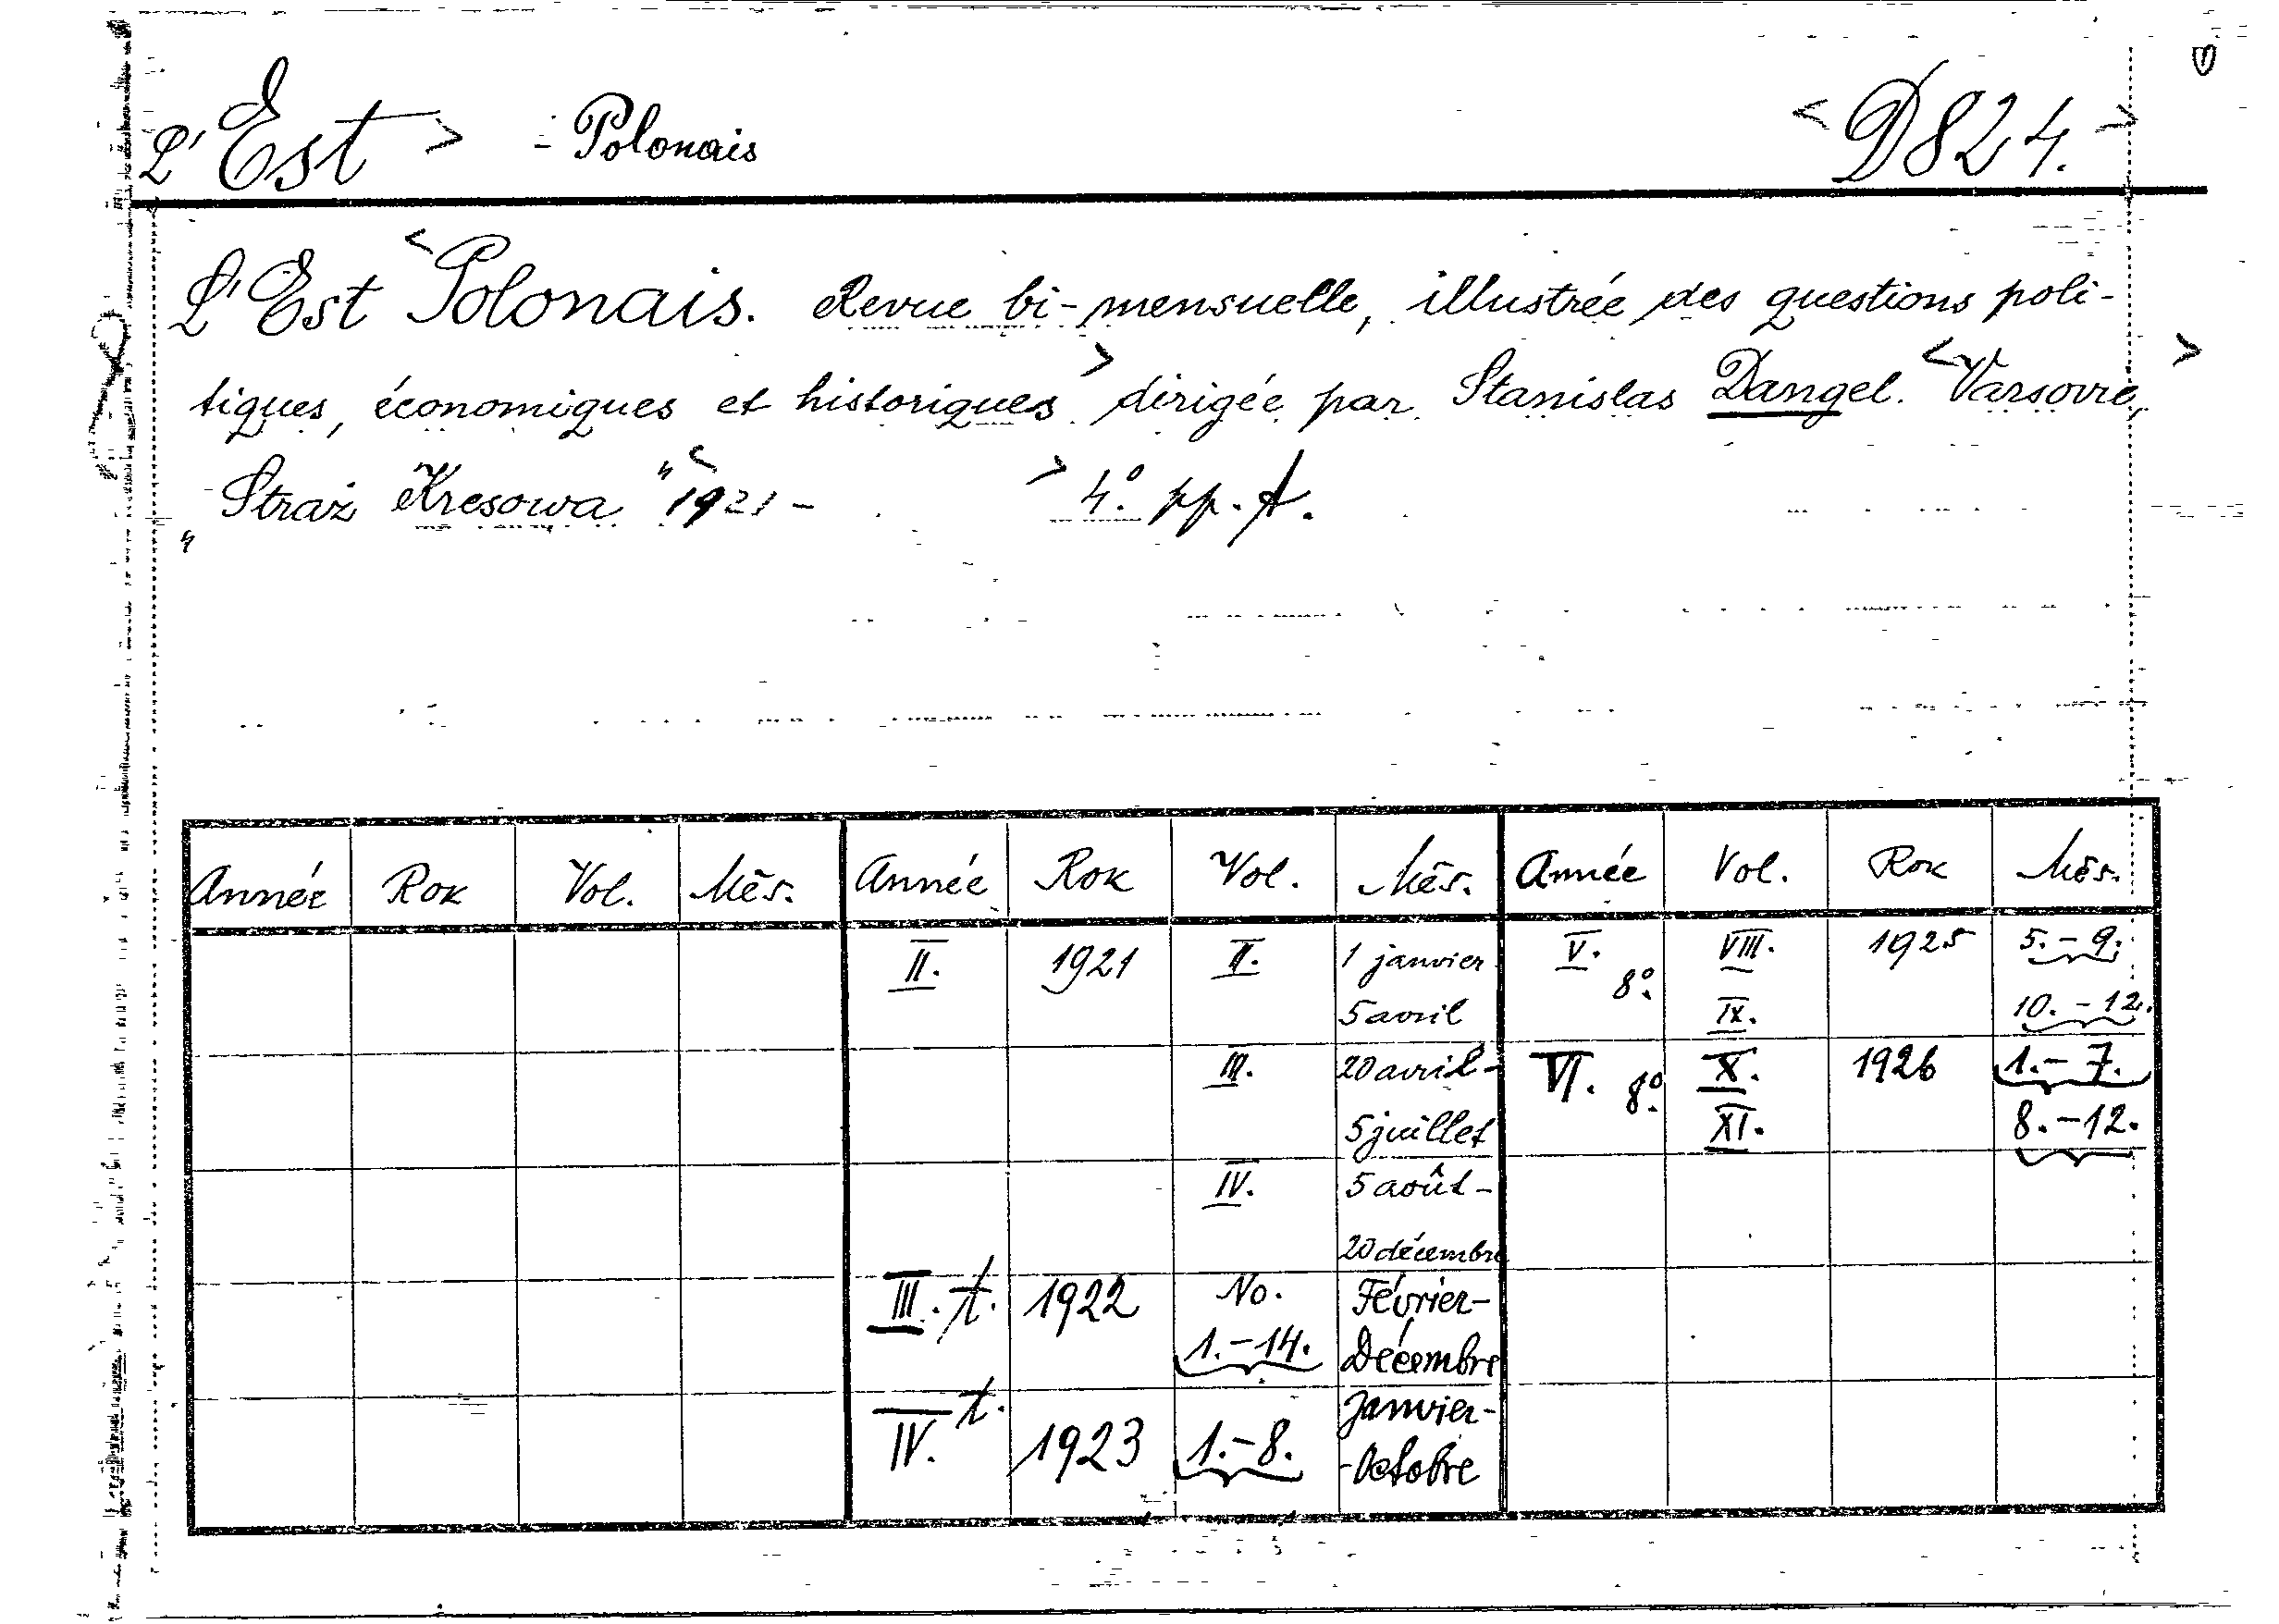 L'Est > - Polonais <D824.>
L'Est <Polonais. Revue bi-mensuelle, illustrée des questions poli-
tiques, économiques et historiques> dirigée par Stanislas Dangel. <Varsovie,>
"Straż Kresowa" <1921 - > 4° pp. A.
Année Rok Vol. Měs. Année Rok Vol. Měs. Année Vol. Rok Měs.
II. 1921 II. 1 janvier V. 8° VIII. 1925 5.-9.
5 avril IX. 10.-12.
III. 20 avril- VI. 8° X. 1926 1.-7.
5 juillet XI. 8.-12.
IV. 5 août-
20 décembre
III. t. 1922 No. Février-
1.-14. Décembre
IV. t. 1923 1.-8. Janvier-
-Octobre